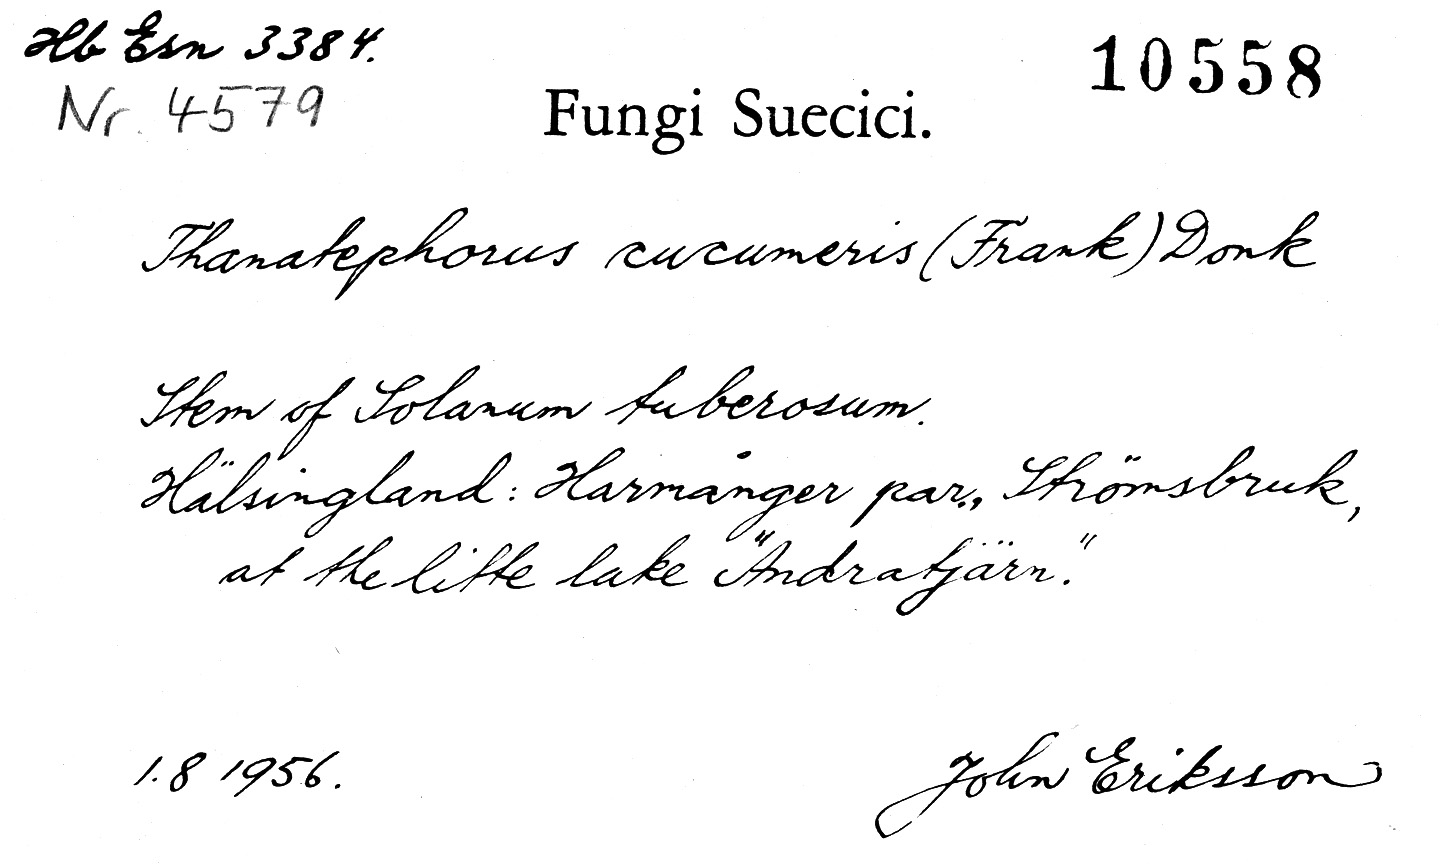 Hb Esn 3384.
10558
Nr. 4579
Fungi Suecici.
Thanatephorus cucumeris (Frank) Donk
Stem of Solanum tuberosum.
Hälsingland: Harmånger par., Strömsbruk,
at the litte lake "Ändratjärn."
1.8 1956.
John Eriksson